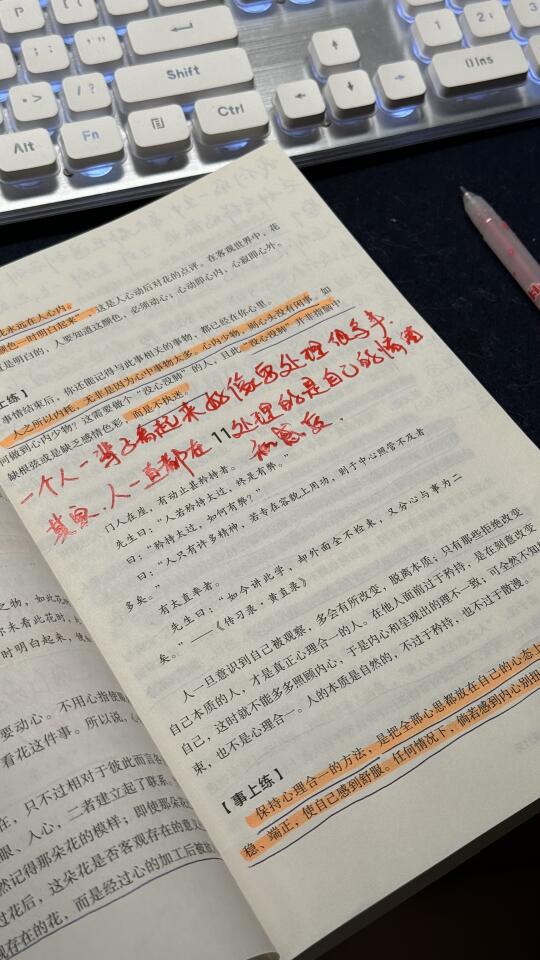 P
1
2↓
↑
Shift
← ↓ → 0 Ins
> /? Ctrl
Alt Fn
花永远在人心内。
颜色一时明白起来”，这是人心动后对花的点评。在客观世界中，花
是明白的，人要知道这颜色，必须动心；心动即心内，心寂即心外。
上练】
事情结束后，你还能记得与此事相关的事物，都已经在你心里。
人之所以内耗，无非是因为心中事物太多。心内少物，则心头没有闲事。如
何做到心内少物？这需要做个“没心没肺”的人，且此“没心没肺”并非指脑中
缺根弦或是缺乏感情色彩，而是不执迷。
一个人一辈子看起来好像要处理很多事
人一直都在处理的是自己的情
11
门人在座，有动止甚矜持者。
先生曰：“人若矜持太过，终是有弊。”
曰：“矜持太过，如何有弊？”
曰：“人只有许多精神，若专在容貌上用功，则于中心照管不及者
多矣。”
有太直率者。
先生曰：“如今讲此学，却外面全不检束，又分心与事为二
矣。”——《传习录·黄直录》
人一旦意识到自己被观察，多会有所改变，脱离本质；只有那些拒绝改变
自己本质的人，才是真正心理合一的人。在他人面前过于矜持，是在刻意改变
自己，这时就不能多多照顾内心，于是内心和呈现出的理不一致；可全然不知
束，也不是心理合一。人的本质是自然的，不过于矜持，也不过于散漫。
【事上练】
保持心理合一的方法，是把全部心思都放在自己的心态上
稳、端正，使自己感到舒服。任何情况下，倘若感到内心别扭
之物，如此花
你未看此花时，
时明白起来，便
要动心。不用心指使眼
看花这件事。所以说，心
在，只不过相对于彼此而言名
眼、人心，二者建立起了联系。
然记得那朵花的模样；即使那朵花
过花后，这朵花是否客观存在的意义
现存在的花，而是经过心的加工后被